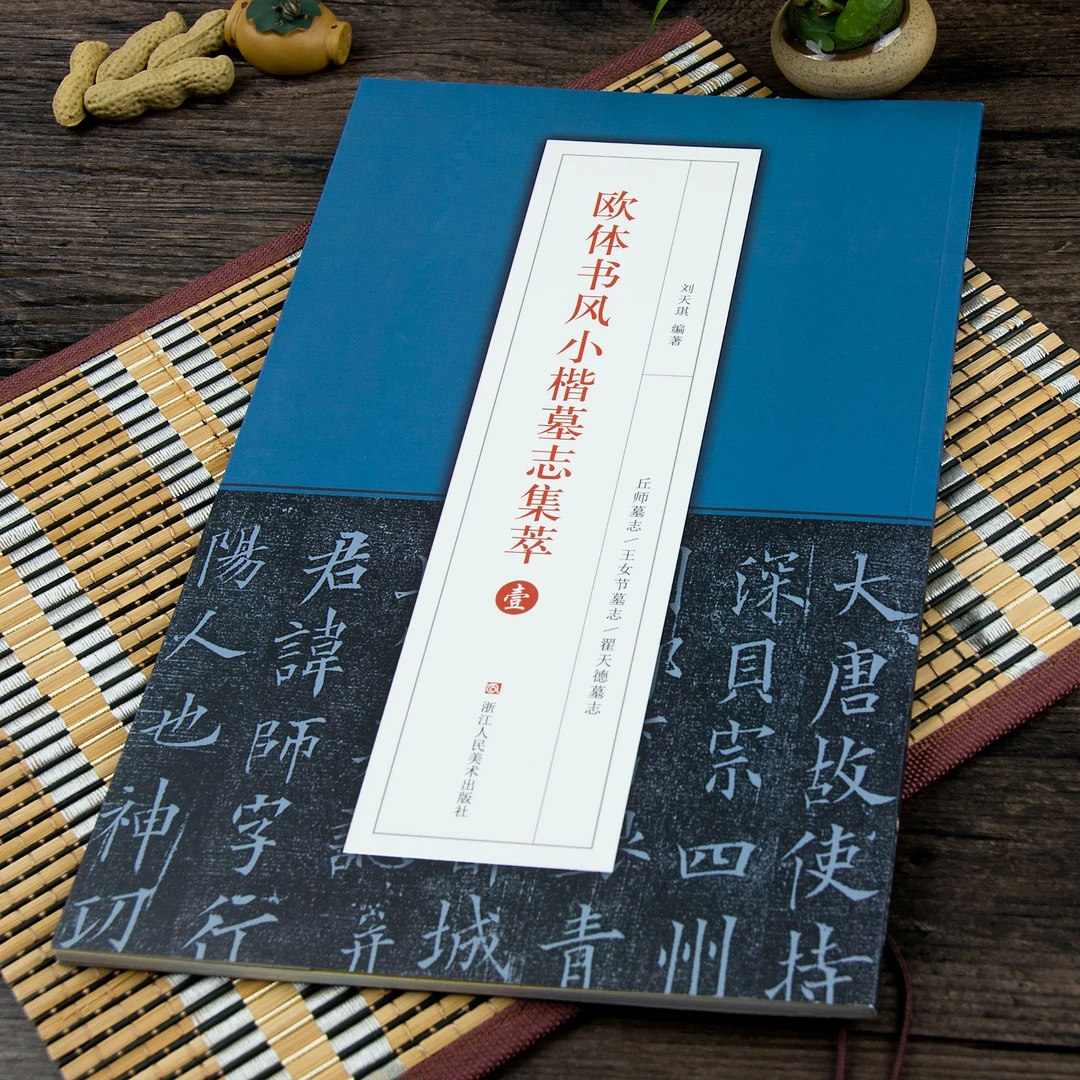 欧体书风小楷墓志集萃
壹
刘天琪 编著
丘师墓志/王女节墓志/翟天德墓志
浙江人民美术出版社
大唐故使持
深貝宗四州
青
城
君諱師字行
陽人也神㓛